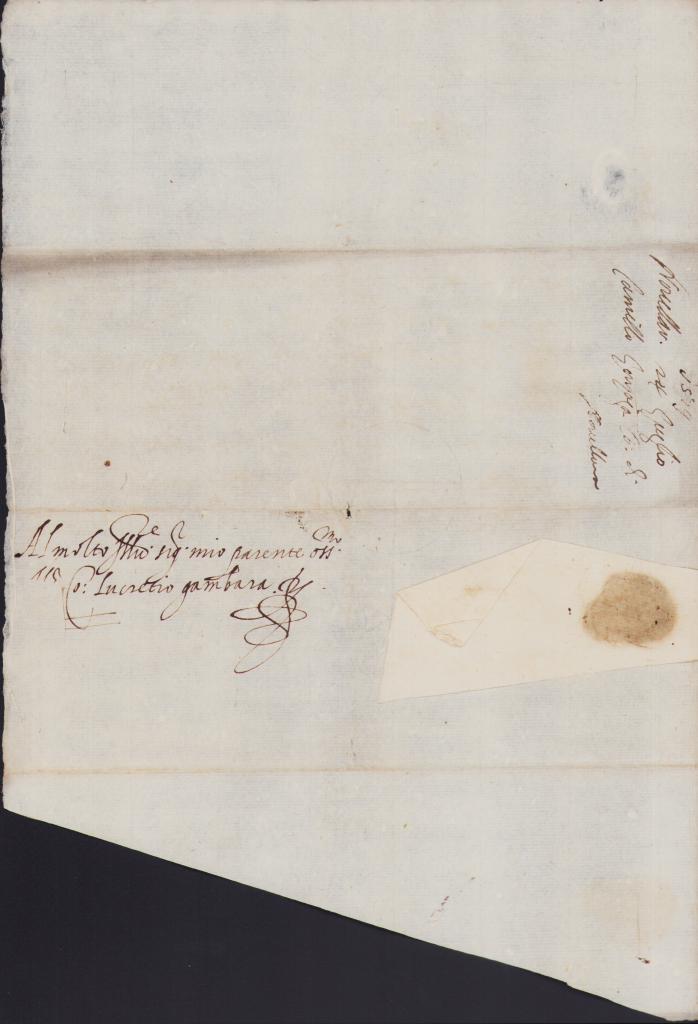 Al molto Ill.re sig.r mio parente oss.mo
Co: Lucretio gambara.
1589
Novellar. 24 Luglio
Camillo Gonzaga Co: di
Novellara